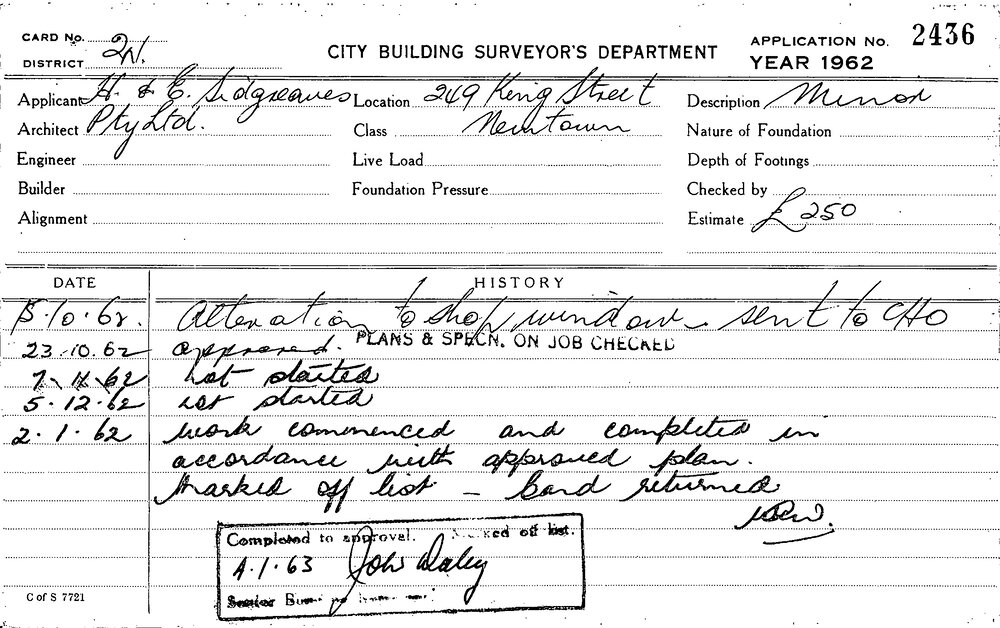 CARD No.
DISTRICT 2N.
CITY BUILDING SURVEYOR'S DEPARTMENT
APPLICATION No. 2436
YEAR 1962
Applicant H. & E. Sidgreaves
Location 249 King Street
Description Minor
Architect Pty Ltd.
Class Newtown
Nature of Foundation
Engineer
Live Load
Depth of Footings
Builder
Foundation Pressure
Checked by
Alignment
Estimate £250
DATE HISTORY
5.10.62. Alteration to shop window sent to CHO
23.10.62 approved. PLANS & SPECN. ON JOB CHECKED
7.11.62 not started
5.12.62 not started
2.1.62 work commenced and completed in
accordance with approved plan.
Marked off list - Card returned
Completed to approval. Marked off list.
4.1.63 John Daley
Senior
C of S 7721